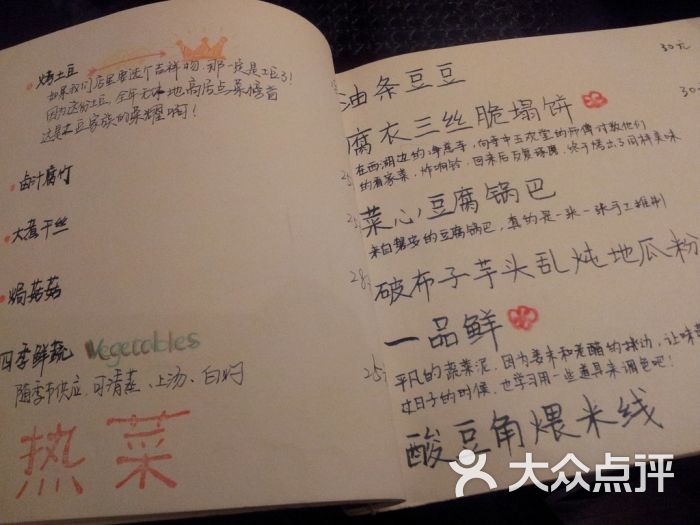 烤土豆
如果我们店里要选个吉祥物,那一定是土豆了!
因为这份土豆,全年无休地高居点菜榜首
这是土豆家族的荣耀啊!
卤汁腐竹
大煮干丝
焗菇菇
四季鲜蔬 Vegetables
随季节供应,可清蒸、上汤、白灼
热菜
30元
油条豆豆
30
腐衣三丝脆塌饼
在西湖边的净慈寺,向寺中五观堂的师傅讨教他们
的看家菜,炸响铃,回来后反复琢磨,终于烤出了同样美味
菜心豆腐锅巴
来自磐安的豆腐锅巴,真的是一张一张手工摊制
28
破布子芋头乱炖地瓜粉
一品鲜
平凡的蔬菜泥,因为姜末和老醋的撺边,让味
25
过日子的时候,也学习用一些道具来调色吧!
酸豆角煨米线
大众点评